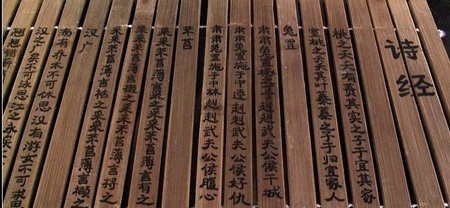 诗经
桃之夭夭有蕡其实之子于宜其家
室桃之夭其叶蓁蓁之子于归宜家人
兔罝
肃肃兔罝椓之丁丁赳赳武夫公侯干城
肃肃兔罝施于中逵赳赳武夫公侯好仇
肃肃兔罝施于中林赳赳武夫公侯腹心
芣苢
采采芣苢薄言采之采采芣苢薄言有之
采采芣苢薄言掇之采采芣苢薄言捋之
采采芣苢薄言袺之采采芣苢薄言襭之
汉广
南有乔木不可休思汉有游女不可求思
汉之广矣不可泳思江之永矣不
翘翘错薪